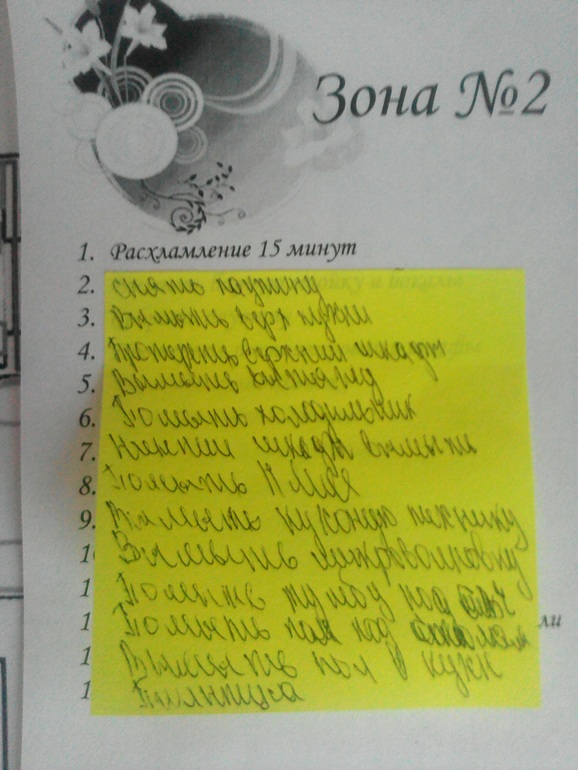 Зона №2
1. Расхламление 15 минут
2. снять паутину
3. Вымыть верх кухни
4. Протереть верхний шкафы
5. Вымыть вытяжку
6. Помыть холодильник
7. Нижний шкафы вымыть
8. Помыть
9. Вымыть кухонную технику
1 Вымыть микроволновку
1 Помыть тумбу под
1 Помыть пол под ли
1 Вымыть пол кухн
1